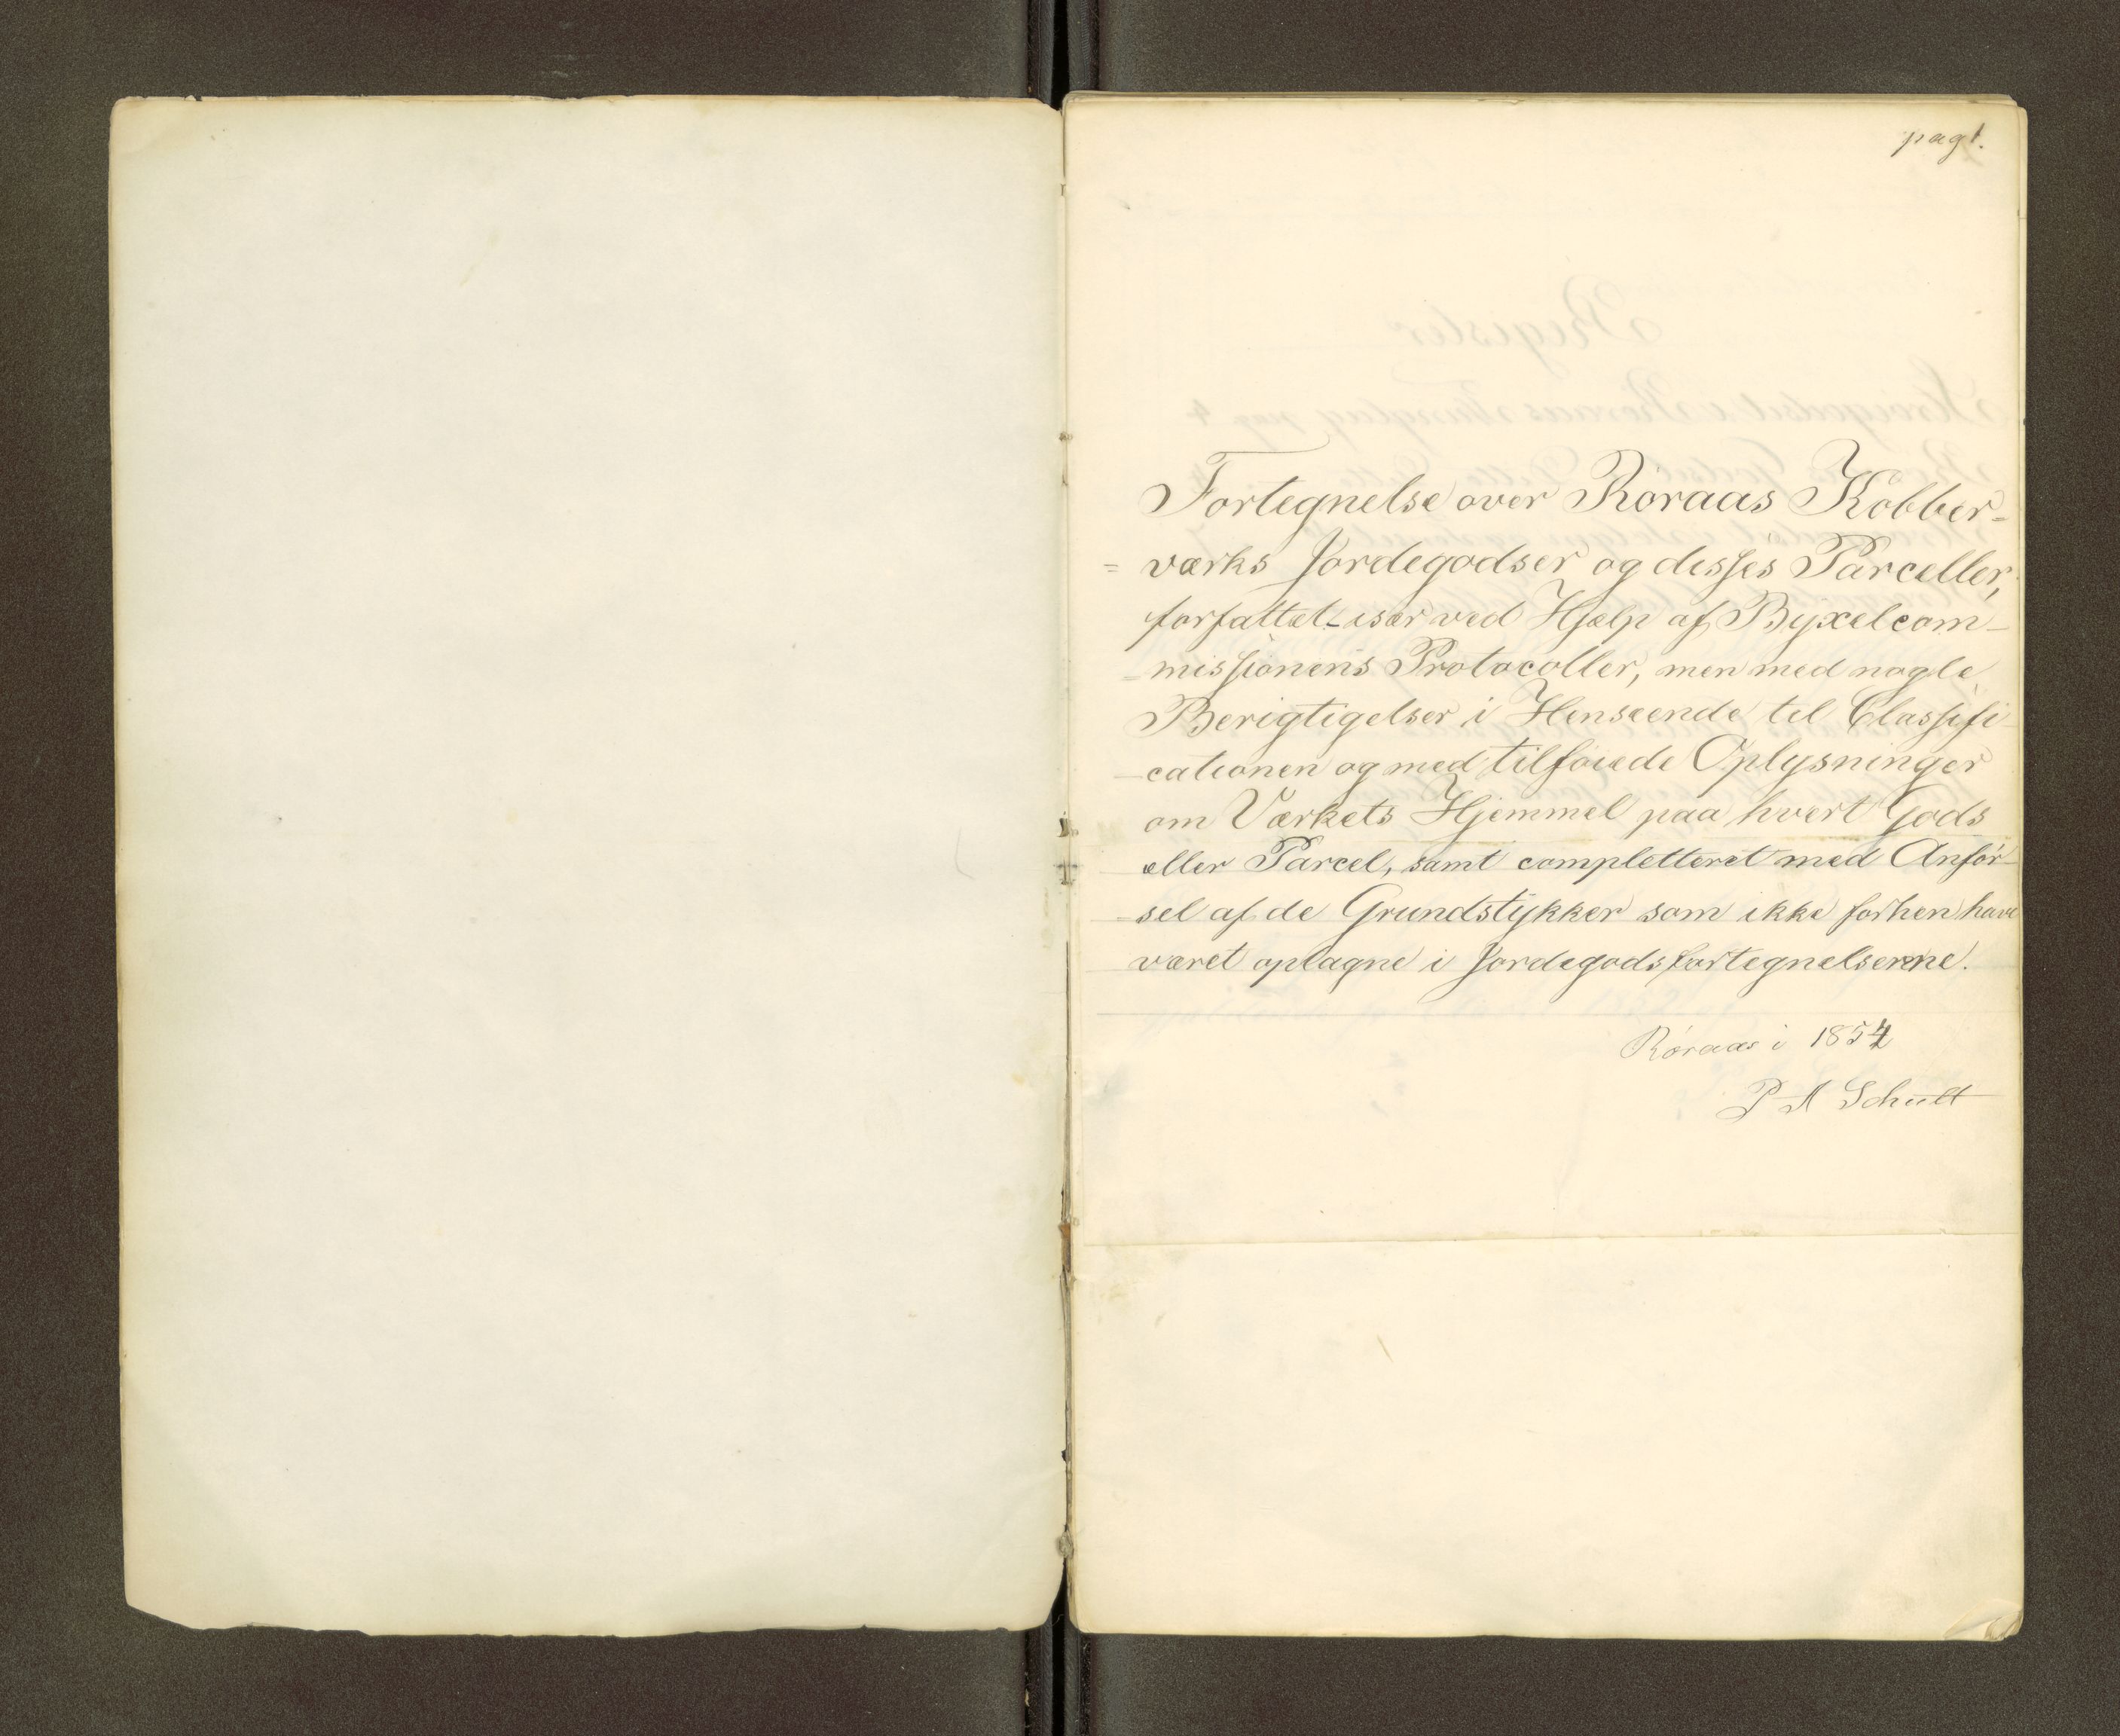 pag 1.
Fortegnelse over Röraas Kobber-
= værks Jordegodser og disses Parceller,
forfattet især ved Hjælp af Byxelcom-
= missionens Protocoller, men med nogle
Berigtigelser i Henseende til Classifi-
-cationen og med tilföiede Oplysninger
om Værkets Hjemmel paa hvert Gods
eller Parcel, samt completteret med Anför-
-sel af de Grundstykker som ikke forhen have
været optagne i Jordegodsfortegnelserne.
Röraas i 1854
P A Schult